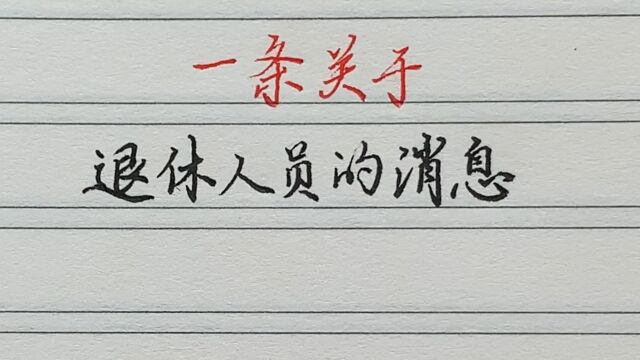 一条关于
退休人员的消息